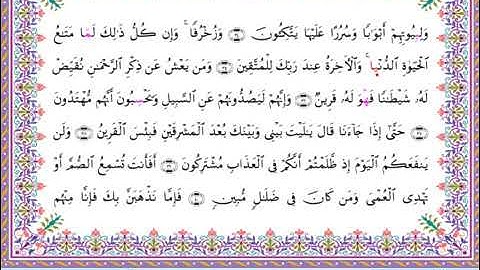 وَلِبُيُوتِهِمْ أَبْوَٰبًا وَسُرُرًا عَلَيْهَا يَتَّكِـُٔونَ ۝ وَزُخْرُفًا ۚ وَإِن كُلُّ ذَٰلِكَ لَمَّا مَتَٰعُ
ٱلْحَيَوٰةِ ٱلدُّنْيَا ۚ وَٱلْـَٔاخِرَةُ عِندَ رَبِّكَ لِلْمُتَّقِينَ ۝ وَمَن يَعْشُ عَن ذِكْرِ ٱلرَّحْمَٰنِ نُقَيِّضْ
لَهُۥ شَيْطَٰنًا فَهُوَ لَهُۥ قَرِينٌ ۝ وَإِنَّهُمْ لَيَصُدُّونَهُمْ عَنِ ٱلسَّبِيلِ وَيَحْسَبُونَ أَنَّهُم مُّهْتَدُونَ
۝ حَتَّىٰٓ إِذَا جَآءَنَا قَالَ يَٰلَيْتَ بَيْنِى وَبَيْنَكَ بُعْدَ ٱلْمَشْرِقَيْنِ فَبِئْسَ ٱلْقَرِينُ ۝ وَلَن
يَنفَعَكُمُ ٱلْيَوْمَ إِذ ظَّلَمْتُمْ أَنَّكُمْ فِى ٱلْعَذَابِ مُشْتَرِكُونَ ۝ أَفَأَنتَ تُسْمِعُ ٱلصُّمَّ أَوْ
تَهْدِى ٱلْعُمْىَ وَمَن كَانَ فِى ضَلَٰلٍ مُّبِينٍ ۝ فَإِمَّا نَذْهَبَنَّ بِكَ فَإِنَّا مِنْهُم